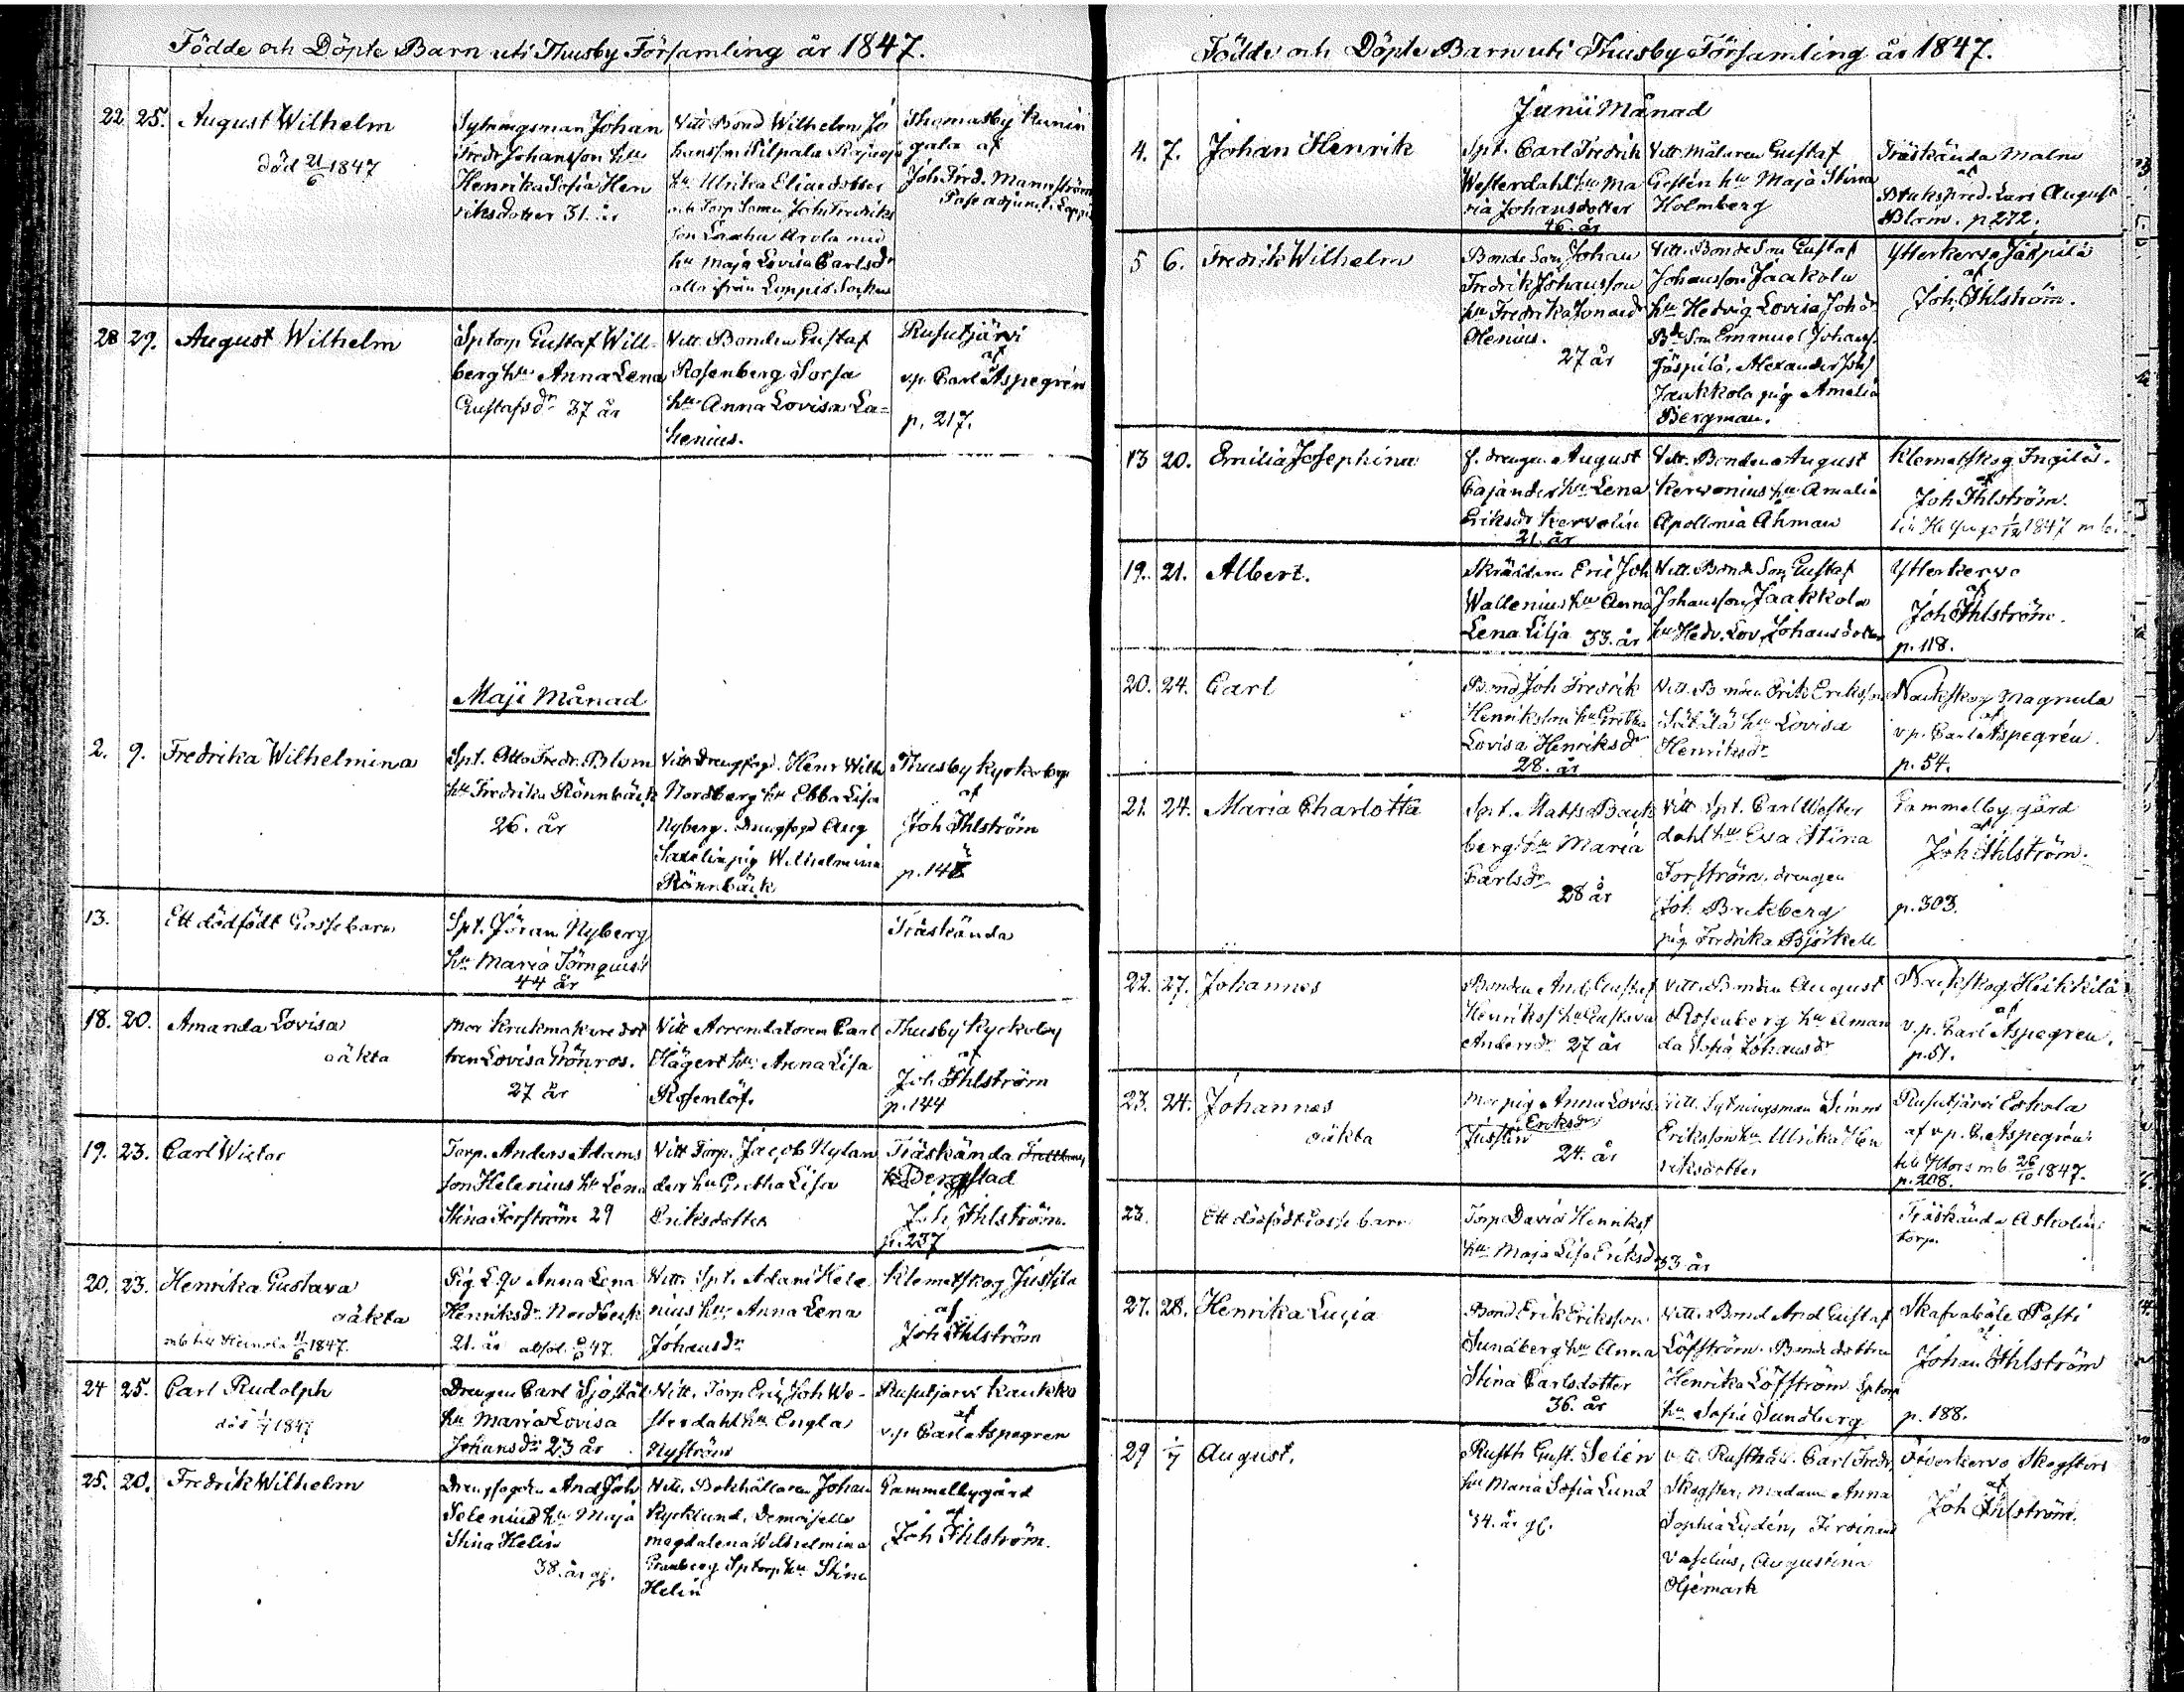 Födde och Döpte Barn uti Thusby Församling år 1847.
22 25. August Wilhelm
död 21/6 1847
Sytningsman Johan
Fredr Johansson hu
Henrika Sofia Hen
riksdotter 31. år
Vitt. Bond Wilhelm Jo
hansson Pilpala
hu Ulrika Eliædotter
och Torp Sonen Joh Fredriks
son
hu Maja Lovisa Carlsdr
alla ifrån Loppis Socken
Thomasby Kunin
gala af
Joh Fred. Mannström
28 29. August Wilhelm
Sptorp Gustaf Will-
berg hu Anna Lena
Gustafsdr 37 år
Vitt. Bonden Gustaf
Rosenberg Sorsa
hu Anna Lovisa La=
henius.
Rusutjärvi
af
v.p. Carl Aspegrén
p. 217.
Maji Månad
2. 9. Fredrika Wilhelmina
Spt. Otto Fredr. Blom
hu Fredrika Rönnbäck
26. år
Vittn Drengfogd. Henr Wilh
Nordberg hu Ebba Lisa
Nyberg. Drengfogd Aug
Saxelin pig Wilhelmina
Rönnbäck
Thusby Kyrkoby
af
Joh Ihlström
13. Ett dödfödt Gossebarn
Spt. Jöran Nyberg
hu Maria Törnquist
44 år
Träskända
18. 20. Amanda Lovisa
oäkta
Mor Krukmakare dot
tren Lovisa Grönros.
27 år
Vitt Arrendatoren Carl
Hägert hu Anna Lisa
Rosenlöf.
Thusby Kyrkoby
af
Joh Ihlström
p. 144
19. 23. Carl Victor
Torp. Anders Adams
son Helenius hu Lena
Stina Forström 29
Vitt Torp. Jacob Nylan
der hu Gretha Lisa
Eriksdotter
Träskända
Bergstad
Joh Ihlström.
p. 237
20. 23. Henrika Gustava
oäkta
mb till Heinola 11/6 1847.
Pig. L.qv Anna Lena
Henriksdr Nordbeck
21. år
Vitt. Spt. Adam Hele
nius hu Anna Lena
Johansdr
Klemetskog Jussila
af
Joh Ihlström
24 25. Carl Rudolph
död 1/7 1847
Drengen Carl Sjöstål
hu Maria Lovisa
Johansdr 23 år
Vitt. Torp Eric Joh We-
sterdahl hu Engla
Nyström
Rusutjärvi Kaukko
af
v.p Carl Aspegren
25. 20. Fredrik Wilhelm
Drengfogden And Joh
Selenius hu Maja
Stina Helin
38. år gl.
Vitt. Bokhållaren Johan
Kycklund, Demoiselle
Magdalena Wilhelmina
Granberg Sptorp hu Stina
Helin
Gammelbygård
af
Joh Ihlström.
Födde och Döpte Barn uti Thusby Församling år 1847.
Junii Månad
4. 7. Johan Henrik
Spt. Carl Fredrik
Westerdahl hu Ma
ria Johansdotter
46. år
Vitt. Målaren Gustaf
Gestén hu Maja Stina
Holmberg
Träskända Malm
af
Bruksspred. Lars August
Blom. p 272.
5 6. Fredrik Wilhelm
Bonde Son Johan
Fredrik Johansson
hu Fredrika Jonaedr
Olenius.
27 år
Vitt. Bonde Son Gustaf
Johansson Jaakola
hu Hedvig Lovisa Johdr
Bde Son Emanuel Johans.
Jäspilä, Alexander Johs
Jaakkola pig Amalia
Bergman.
Ytterkervo Jäspilä
af
Joh. Ihlström.
13 20. Emilia Josephina
f. drengen August
Cajander hu Lena
Eriksdr Kervolin
21. år
Vitt. Bonden August
Kervonius hu Amalia
Apollonia Åhman
Klemetskog Ingilä.
af
Joh Ihlström.
19. 21. Albert.
Skräddaren Eric Joh
Wallenius hu Anna
Lena Lilja 33. år
Vitt. Bonde Son Gustaf
Johansson Jaakkola
hu Hedv. Lov. Johansdotter
Ytterkervo
af
Joh Ihlström.
p. 118.
20. 24. Carl
Bond Joh Fredrik
Henriksson hu Gretha
Lovisa Henriksdr
28. år
Vitt. Bonden Erik Eriksson
hu Lovisa
Henriksdr
Naukskog Magnula
af
v.p. Carl Aspegrén.
p. 54.
21. 24. Maria Charlotta
Spt. Matts Back
berg hu Maria
Carlsdr
28 år
Vitt Spt. Carl Wester
dahl hu Eva Stina
Forström. drengen
Joh. Backberg
pig. Fredrika Björkell
Gammelby gård
af
Joh Ihlström.
p. 303.
22. 27. Johannes
Bonden And. Gustaf
Henrikss hu Gustava
Andersdr 27 år
Vitt. Bonden August
Rosenberg hu Aman
da Sofia Johansdr
Naukskog Heikkilä
af
v.p. Carl Aspegren.
p. 51.
23. 24. Johannes
oäkta
Mor pig Anna Lovis.
Eriksdr
Justin
24. år
Vitt. Sytningsman Simm
Eriksson hu Ulrika Hen
riksdotter
Rusutjärvi Eskola
af v.p. C. Aspegrén.
till Hfors mb 26/10 1847.
p. 208.
23. Ett dödfödt Gosse barn
Torp David Henriks
hu Maja Lisa Eriksdr 33 år
Träskända Askolin
torp.
27. 28. Henrika Lucia
Bond Erik Eriksson
Sundberg hu Anna
Stina Carlsdotter
36. år
Vitt. Bond And Gustaf
Löfström. Bonde dottren
Henrika Löfström Sptorp
hu Sofia Sundberg
Skafvaböle Pasti
af
Johan Ihlström
p. 188.
29 1/7 August.
Rusth Gust. Selén
hu Maria Sofia Lund
34. år gl.
Vitt. Rusthåll. Carl Fredr.
Skogster, Madam Anna
Sophia Lydén, Ferdinand
Vaselius, Augustina
Öjemark
Överkervo Skogsters
af
Joh Ihlström.